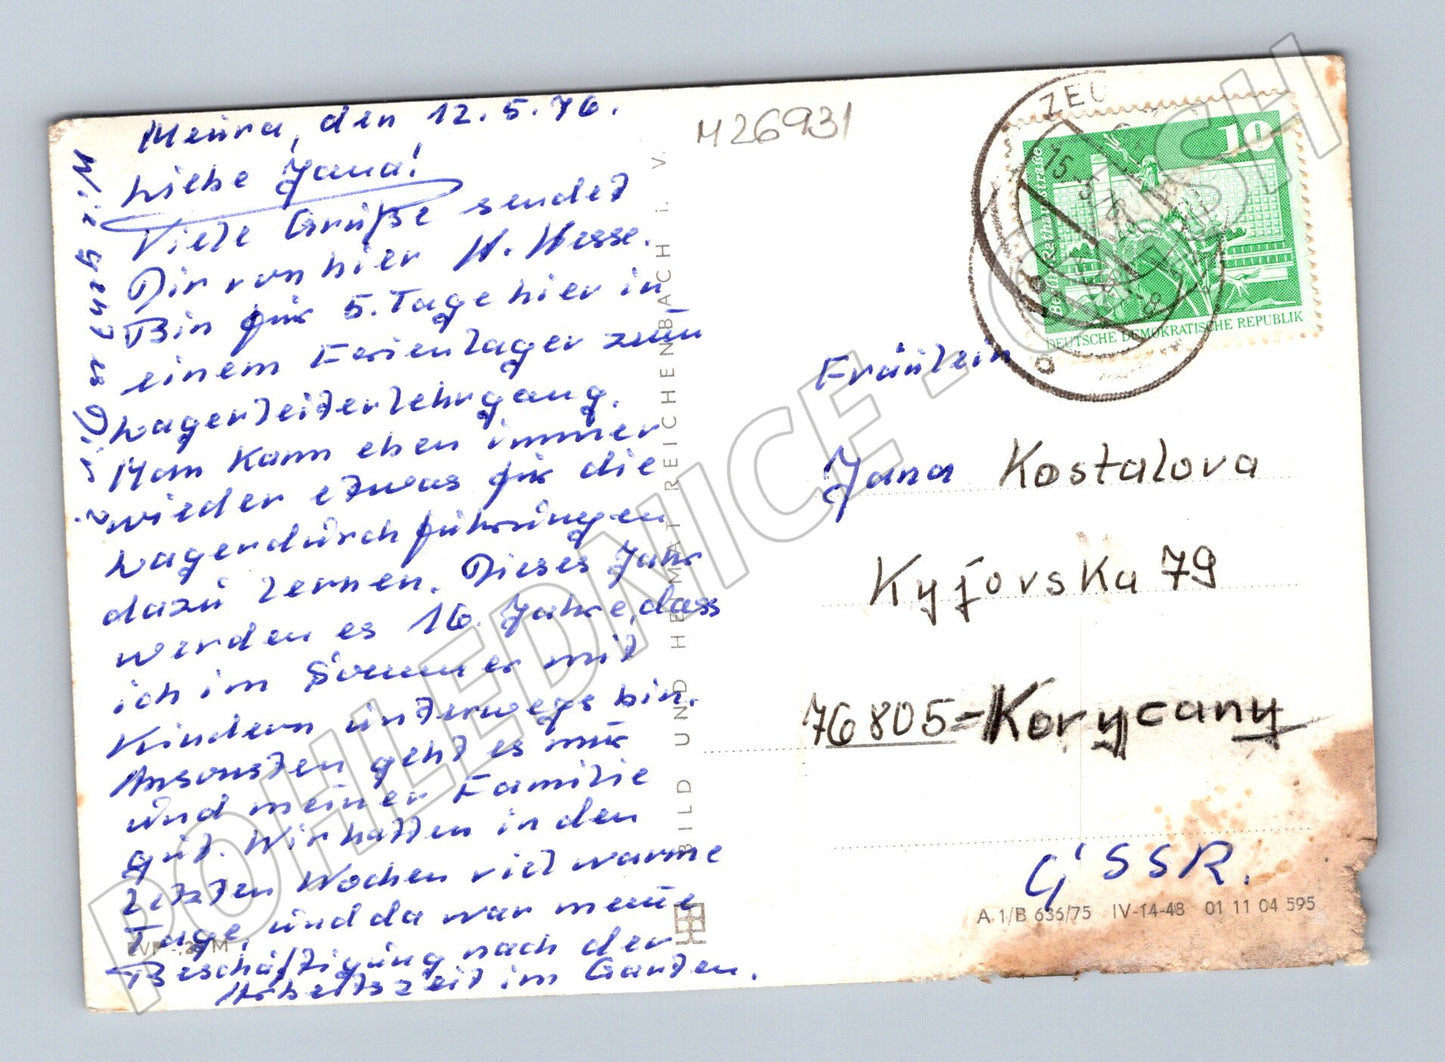 Meura, den 12.5.76.
Liebe Jana!
Viele Grüße sendet
Dir von hier H. Hesse.
Bin für 5. Tage hier in
einem Ferienlager zum
Lagerleiterlehrgang.
Man kann eben immer
wieder etwas für die
Lagerdurchführungen
dazu lernen. Dieses Jahr
werden es 16. Jahre, dass
ich im Sommer mit
Kindern unterwegs bin.
Ansonsten geht es mir
und meiner Familie
gut. Wir hatten in den
letzten Wochen viel warme
Tage, und da war meine
Beschäftigung nach der
Arbeitszeit im Garten.
Wie geht es Dir?
M26931
BILD UND HEIMAT REICHENBACH i. V.
10
DEUTSCHE DEMOKRATISCHE REPUBLIK
Fräulein
Jana Kostalova
Kyjovska 79
76805=Korycany
ČSSR.
A 1/B 636/75 IV-14-48 01 11 04 595
POHLEDNICE - CASH